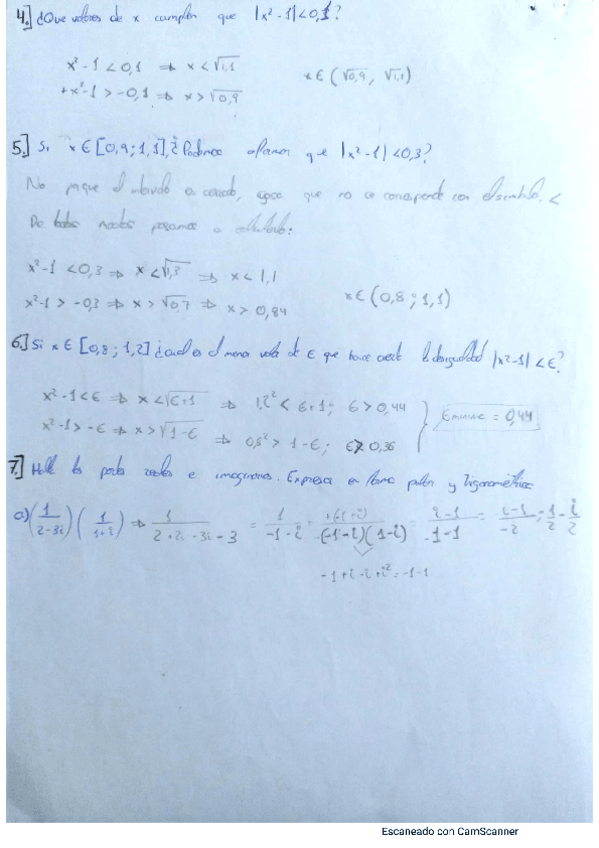 4.] ¿Que valores de x cumplen que |x²-1|<0,1?
x²-1<0,1 ⇒ x<√1,1
x∈(√0,9, √1,1)
+x²-1>-0,1 ⇒ x>√0,9
5.] Si x∈[0,9;1,1], ¿Podemos afirmar que |x²-1|<0,3?
No porque el intervalo es cerrado, que no se corresponde con el simbolo <
De todos modos pasamos a calcularlo:
x²-1<0,3 ⇒ x<√1,3 ⇒ x<1,1
x²-1>-0,3 ⇒ x>√0,7 ⇒ x>0,84
x∈(0,8;1,1)
6.] Si x∈[0,8;1,2] ¿cual es el menor valor de ϵ que hace cierta la desigualdad |x²-1|<ϵ?
x²-1<ϵ ⇒ x<√ϵ+1 ⇒ 1,2²<ϵ+1; ϵ>0,44
x²-1>-ϵ ⇒ x>√1-ϵ ⇒ 0,8²>1-ϵ; ϵ>0,36
= 0,44
7.] Halla las partes reales e imaginarias. Expresa en forma polar y Trigonométrica
a) (1/2-3i)(1/1+i) ⇒ 1/2+2i-3i-3 = 1/-1-i = /(-1-i)(1-i) = i-1/-1-1 = i-1/-2 = 1/2 - i/2
-1+i-i+i²=-1-1
Escaneado con CamScanner